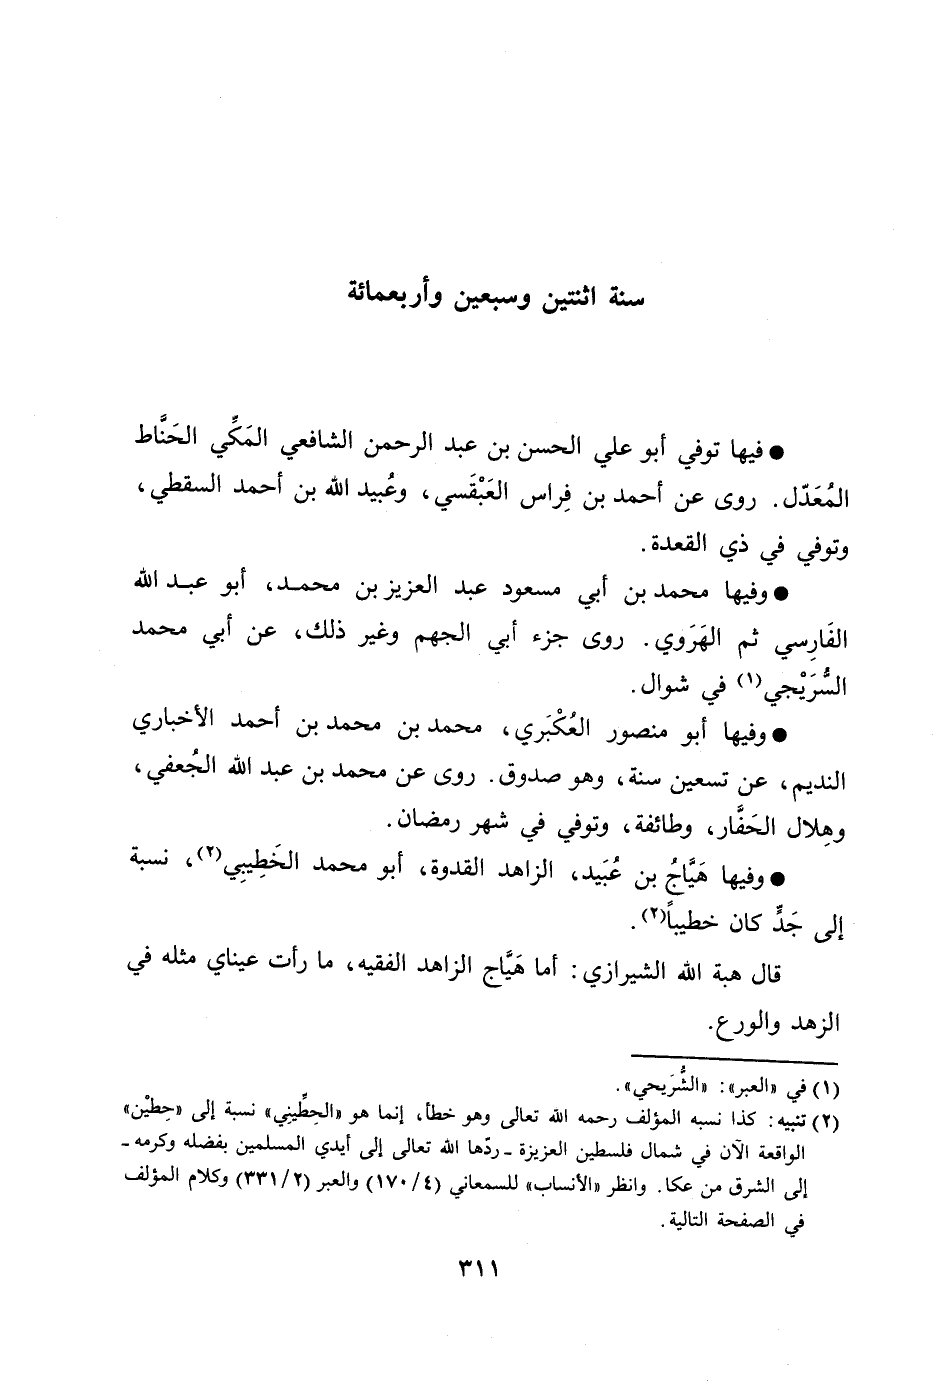 سنة اثنتين وسبعين وأربعمائة
● فيها توفي أبو علي الحسن بن عبد الرحمن الشافعي المَكِّي الحَنَّاط
المُعَدّل. روى عن أحمد بن فِراس العَبْقَسي، وعُبيد الله بن أحمد السقطي،
وتوفي في ذي القعدة.
● وفيها محمد بن أبي مسعود عبد العزيز بن محمد، أبو عبد الله
الفَارِسي ثم الهَرَوي. روى جزء أبي الجهم وغير ذلك، عن أبي محمد
السُّرَيْجي(١) في شوال.
● وفيها أبو منصور العُكْبَري، محمد بن محمد بن أحمد الأخباري
النديم، عن تسعين سنة، وهو صدوق. روى عن محمد بن عبد الله الجُعفي،
وهِلال الحَفَّار، وطائفة، وتوفي في شهر رمضان.
● وفيها هَيَّاجُ بن عُبَيد، الزاهد القدوة، أبو محمد الخَطِيبِي(٢)، نسبة
إلى جَدٍّ كان خطيباً(٢).
قال هبة الله الشيرازي: أما هَيَّاج الزاهد الفقيه، ما رأت عيناي مثله في
الزهد والورع.
(١) في «العبر»: «الشُّرَيحي».
(٢) تنبيه: كذا نسبه المؤلف رحمه الله تعالى وهو خطأ، إنما هو «الحِطِّيني» نسبة إلى «حِطيْن»
الواقعة الآن في شمال فلسطين العزيزة ـ ردّها الله تعالى إلى أيدي المسلمين بفضله وكرمه ـ
إلى الشرق من عكا. وانظر «الأنساب» للسمعاني (٤/ ١٧٠) والعبر (٢/ ٣٣١) وكلام المؤلف
في الصفحة التالية.
٣١١